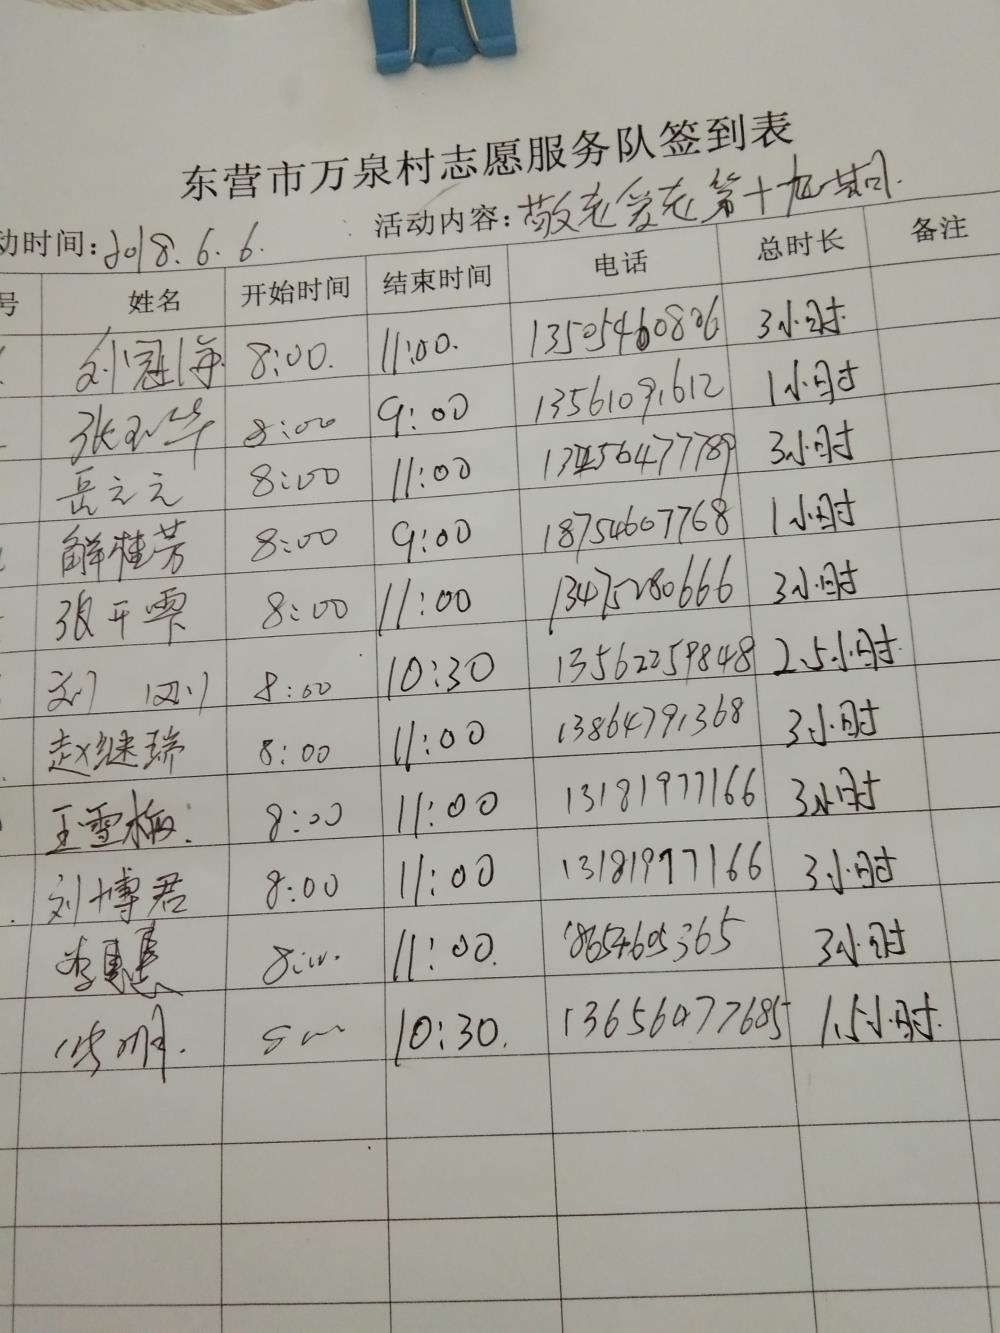 东营市万泉村志愿服务队签到表
动时间:2018.6.6. 活动内容:敬老爱老第十九期.
号 姓名 开始时间 结束时间 电话 总时长 备注
刘冠海 8:00. 11:00. 13505460806 3小时
张玉华 8:00 9:00 13561091612 1小时
岳元元 8:00 11:00 3小时
解桂芳 8:00 9:00 18754607768 1小时
张干雫 8:00 11:00 13475280666 3小时
刘 8:00 10:30 13562259848 2.5小时
赵继瑞 8:00 11:00 13864791368 3小时
王雪梅. 8:00 11:00 13181977166 3小时
刘博君 8:00 11:00 13181977166 3小时
李 8:00. 11:00. 18654605365 3小时
明. 8:00 10:30. 13656477685 1.5小时.